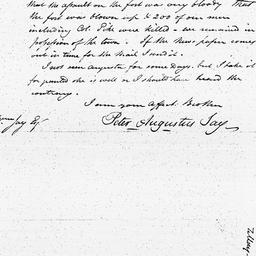 that the assault on the fort was very bloody that
the fort was blown up & 200 of our men
including Col. Pike were killed – we remained in
possession of the town. If the news paper comes
out in time for the Mail I send it.
I not seen Augusta for some days. but I take it
for granted she is well or I should have heard the
contrary.
I am your affect. Brother
Peter Augustus Jay
Jay Esq